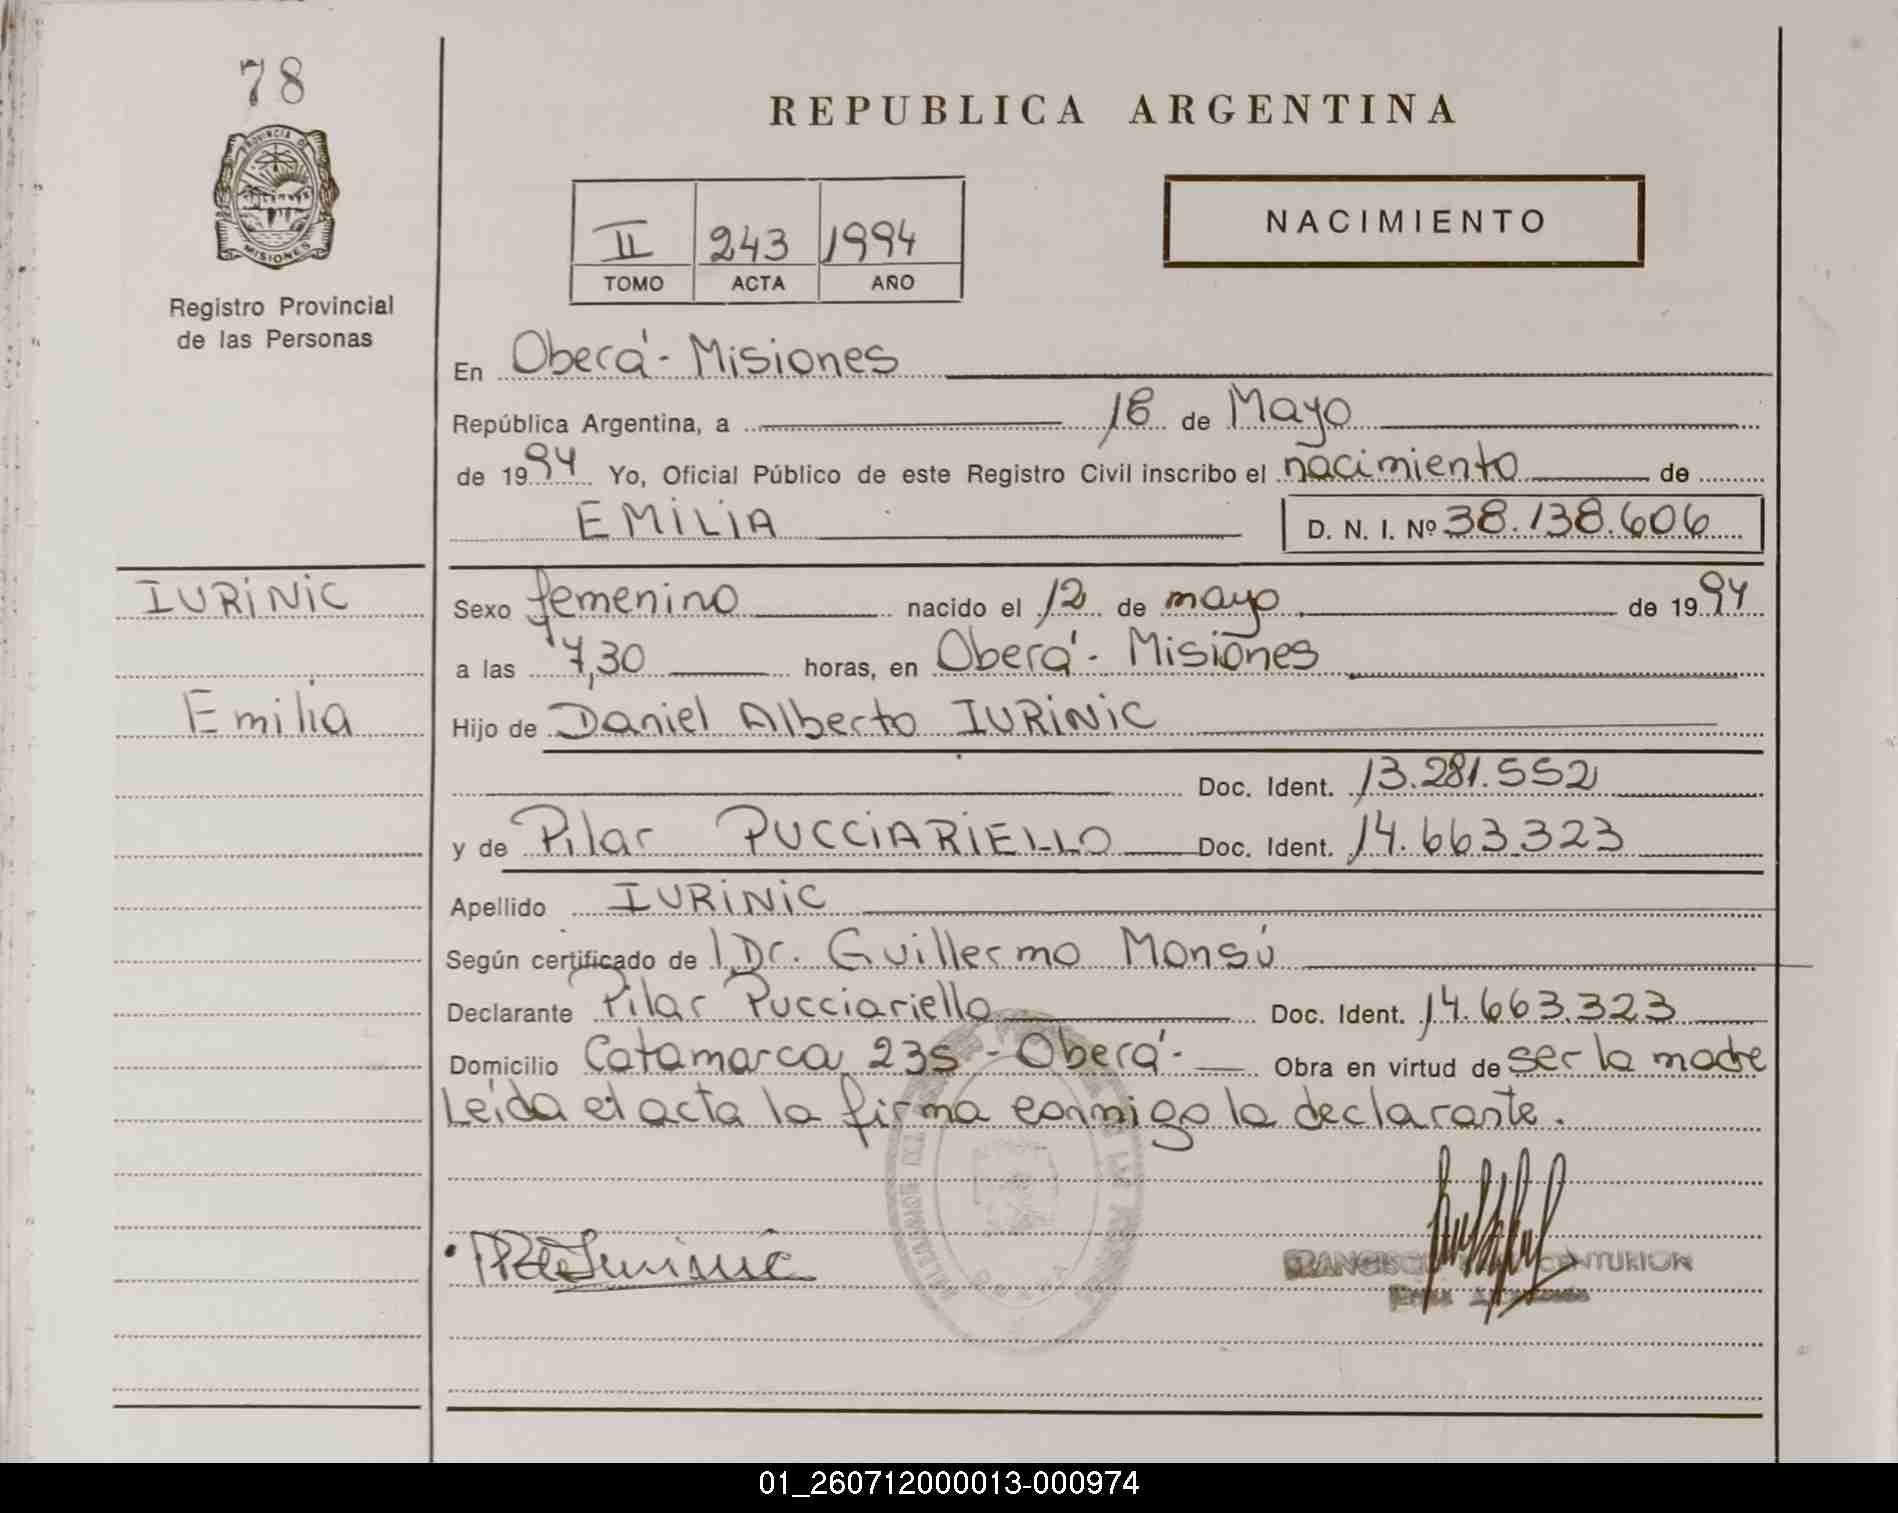 78
PROVINCIA DE
MISIONES
Registro Provincial
de las Personas
REPUBLICA ARGENTINA
II 243 1994
TOMO ACTA AÑO
NACIMIENTO
En Oberá - Misiones
República Argentina, a 16 de Mayo
de 1994 Yo, Oficial Público de este Registro Civil inscribo el nacimiento de
EMILIA D. N. I. Nº 38.138.606
IURINIC
Emilia
Sexo femenino nacido el 12 de mayo de 1994
a las 7,30 horas, en Oberá - Misiones
Hijo de Daniel Alberto IURINIC
Doc. Ident. 13.281.552
y de Pilar PUCCIARIELLO Doc. Ident. 14.663.323
Apellido IURINIC
Según certificado de l Dr. Guillermo Monsú
Declarante Pilar Pucciariello Doc. Ident. 14.663.323
Domicilio Catamarca 235 - Oberá - Obra en virtud de ser la madre
Leída el acta la firma conmigo la declarante.
CENTURION
01_260712000013-000974